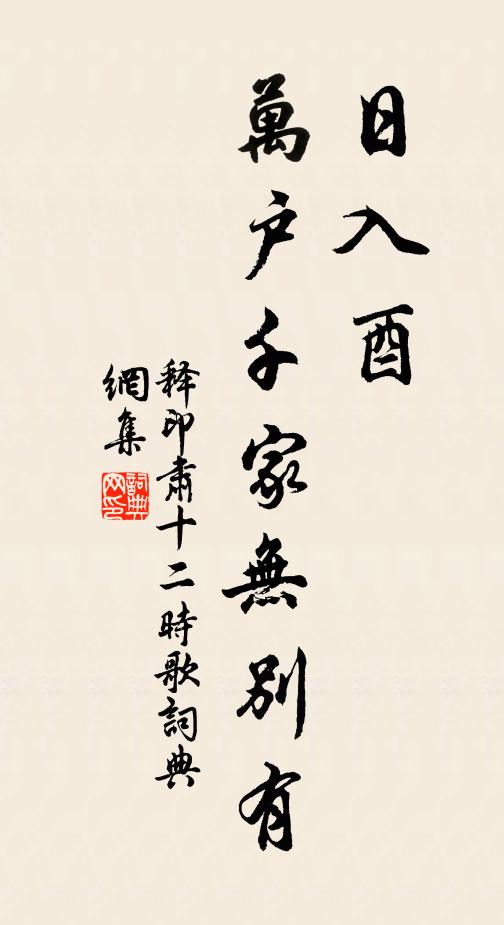 日入酉
萬户千家無別有
释印肅十二時歌詞典
網集
詞典
网印